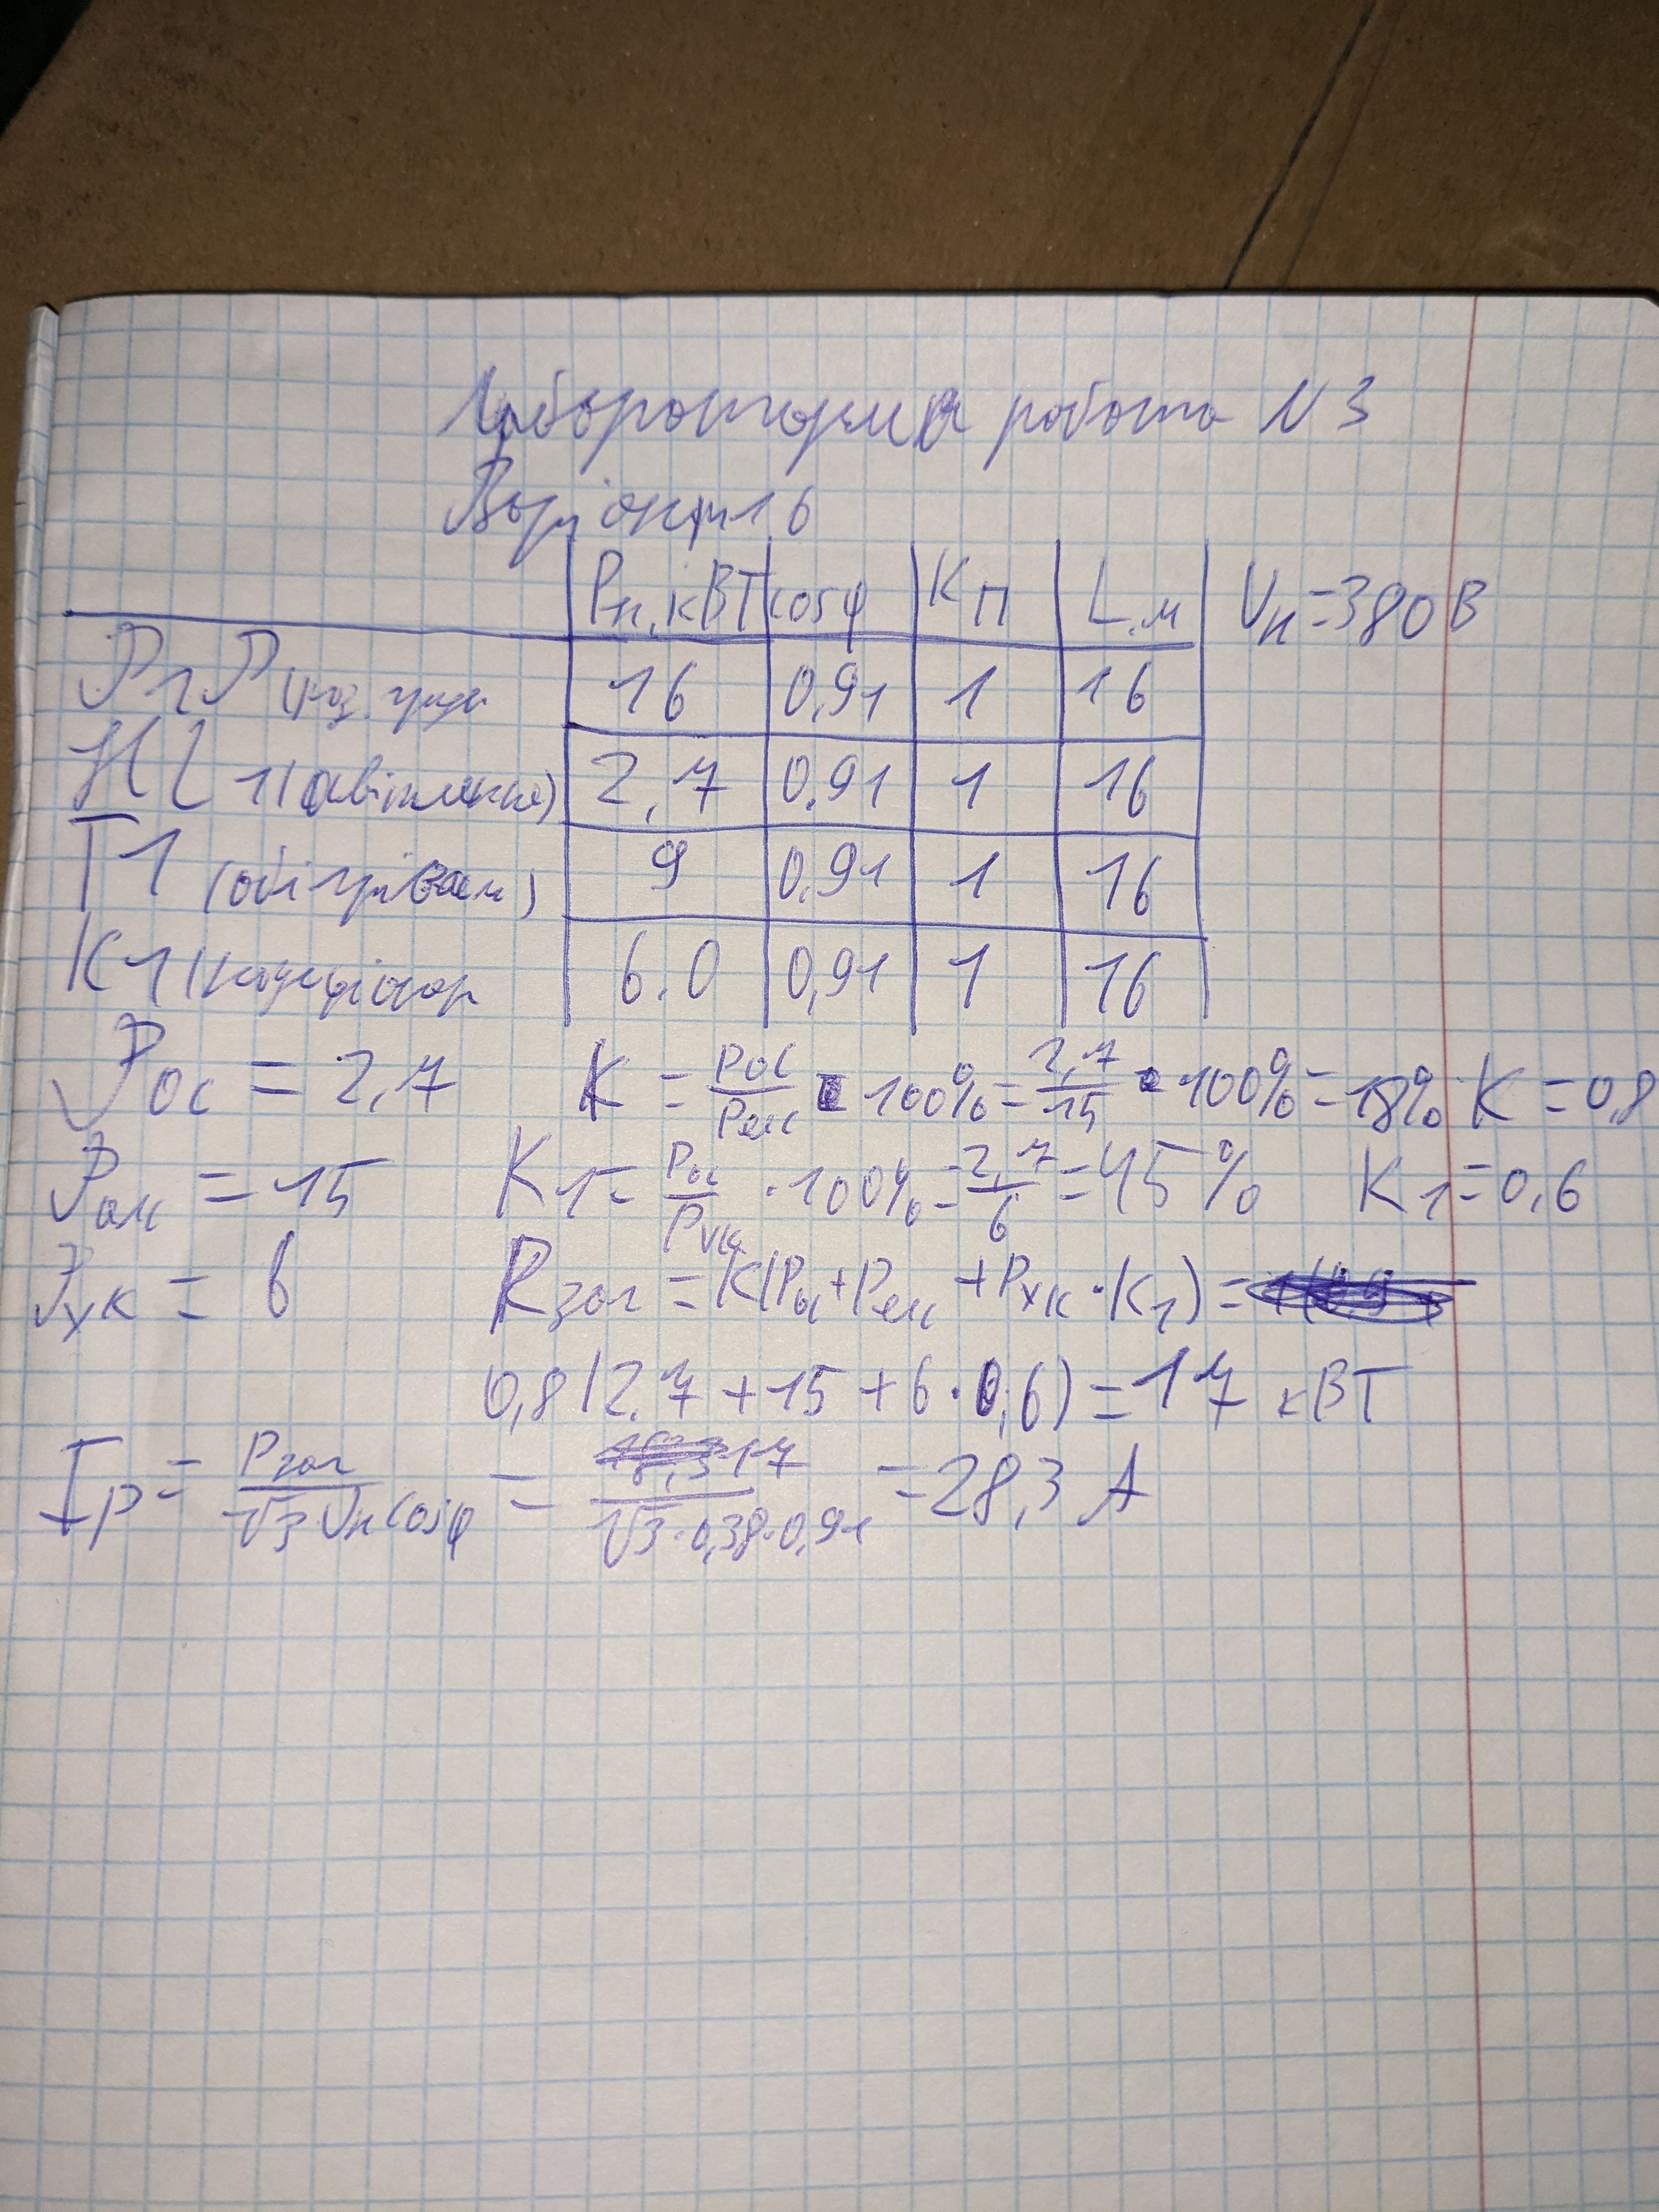 Лабораторна робота N 3
Варіант 16
Рн.кВТ cosφ Кп L.м Uн=380В
16 0,91 1 16
HL 1(освітлення) 2,7 0.91 1 16
Т1 (обігрівач) 9 0.91 1 16
К1(кондиціонер 6.0 0,91 1 16
Рос = 2,7 K = Рос/Релк · 100% = 2,7/15 · 100% = 18% K = 0,8
= 15 K1 = Рос/Рук · 100% = 2,7/6 = 45 % K1 = 0,6
Рук = 6 Рзаг = K(Рос + Релк + Рук · K1) =
0,8(2.7 + 15 + 6 · 0,6) = 17 кВТ
Ip = Рзаг/√3 Uн cosφ = 17/√3 · 0,38 · 0,91 = 28,3 А